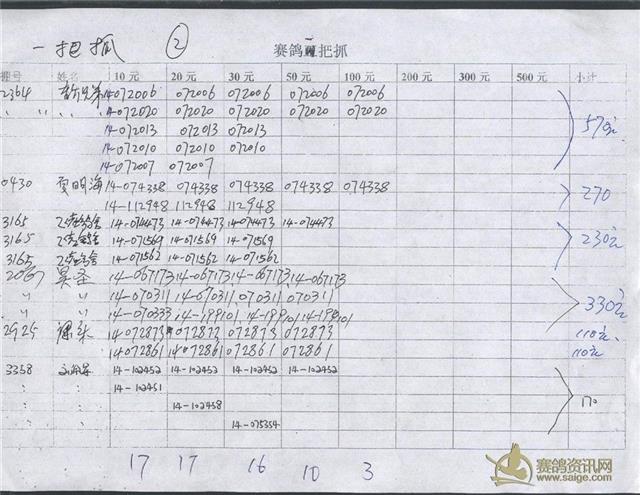 一把抓 ②
赛鸽 把抓
棚号 姓名 10元 20元 30元 50元 100元 200元 300元 500元 小计
2364 14-072006 072006 072006 072006 072006
〃 〃 〃 〃 14-072020 072020 072020 072020 072020
14-072013 072013 072013
14-072010 072010 072010
14-072007 072007
570元
0430 贾明海 14-074338 074338 074338 074338 074338
14-112948 112948 112948
270
3165 14-074473 14-074473 14-074473 14-074473
3165 14-071569 14-071569 14-071569
3165 14-071562 14-071562 14-071562
230元
2067 吴圣 14-067173 14-067173 14-067173 14-067173
〃 〃 14-070311 14-070311 070311 070311
〃 〃 14-070333 14-199101 14-199101 14-199101
330元
2925 14-072873 14 072873 072873 072873
14-072861 14 072861 072861 072861
110元
110元
3358 14-102452 14-102452 14-102452 14-102452
14-102451
14-102458
14-075354
170
17 17 16 10 3
赛鸽资讯网
www.saige.com